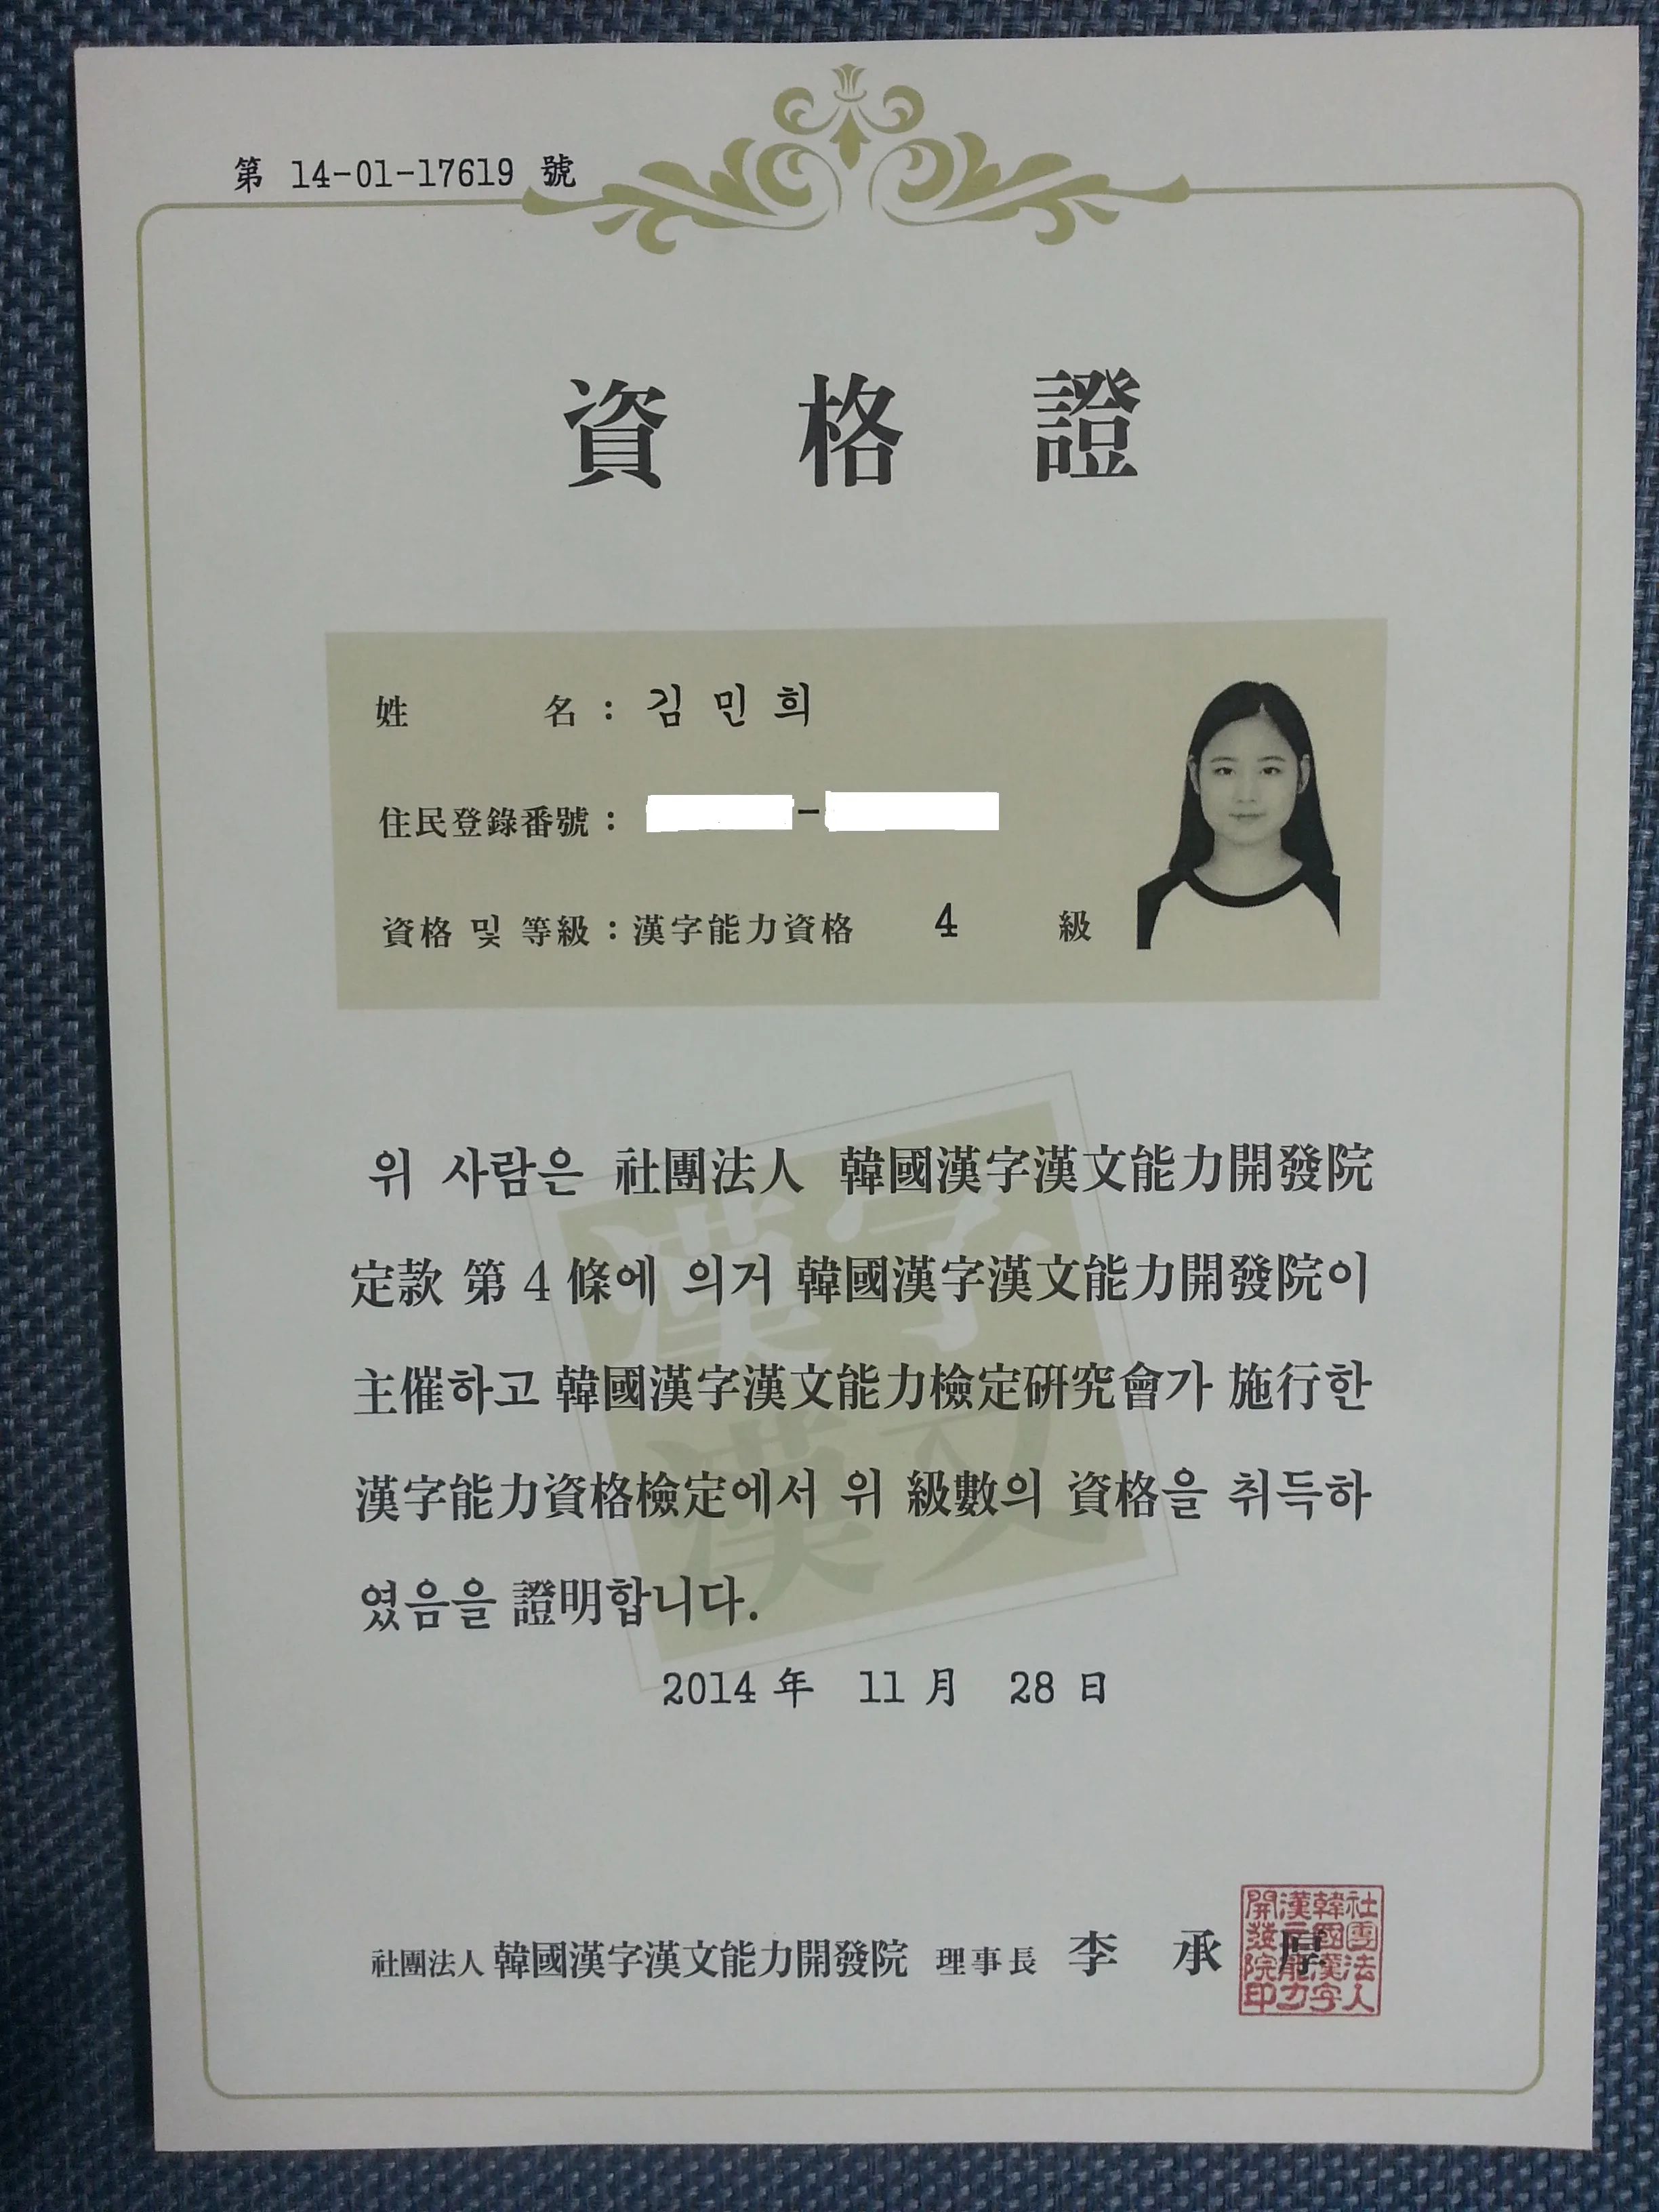 第 14-01-17619 號
資格證
姓 名 : 김민희
住民登錄番號 : -
資格 및 等級 : 漢字能力資格 4 級
위 사람은 社團法人 韓國漢字漢文能力開發院
定款 第 4 條에 의거 韓國漢字漢文能力開發院이
主催하고 韓國漢字漢文能力檢定硏究會가 施行한
漢字能力資格檢定에서 위 級數의 資格을 취득하
였음을 證明합니다.
漢字
漢文
2014 年 11 月 28 日
社團法人 韓國漢字漢文能力開發院 理事長 李承厚
社團法人
韓國漢字
漢文能力
開發院印